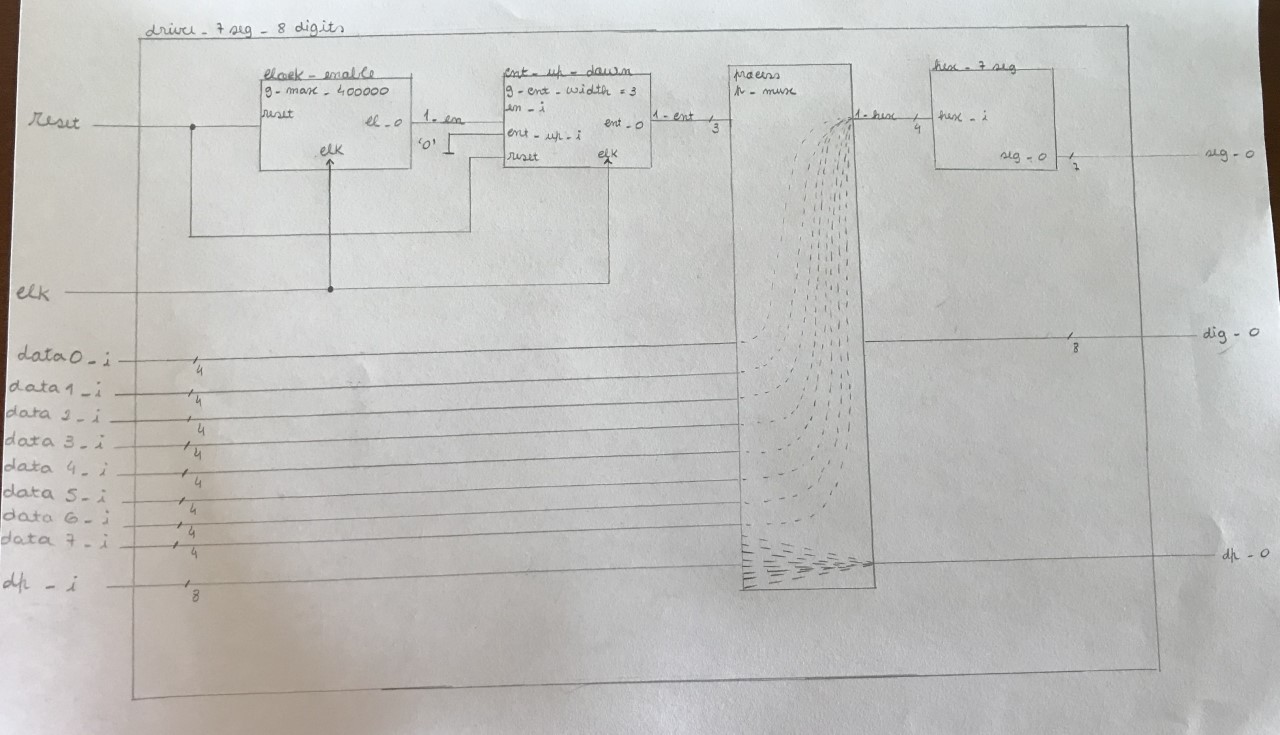 driver_7seg_8digits
clock_enable
g_max = 400000
reset
ce_o
clk
1_en
'0'
cnt_up_down
g_cnt_width = 3
en_i
cnt_up_i
reset
cnt_o
clk
1_cnt
3
process
p_mux
1_hex
4
hex_7seg
hex_i
seg_o
7
seg_o
reset
clk
data0_i
4
data1_i
4
data2_i
4
data3_i
4
data4_i
4
data5_i
4
data6_i
4
data7_i
4
dp_i
8
dig_o
8
dp_o